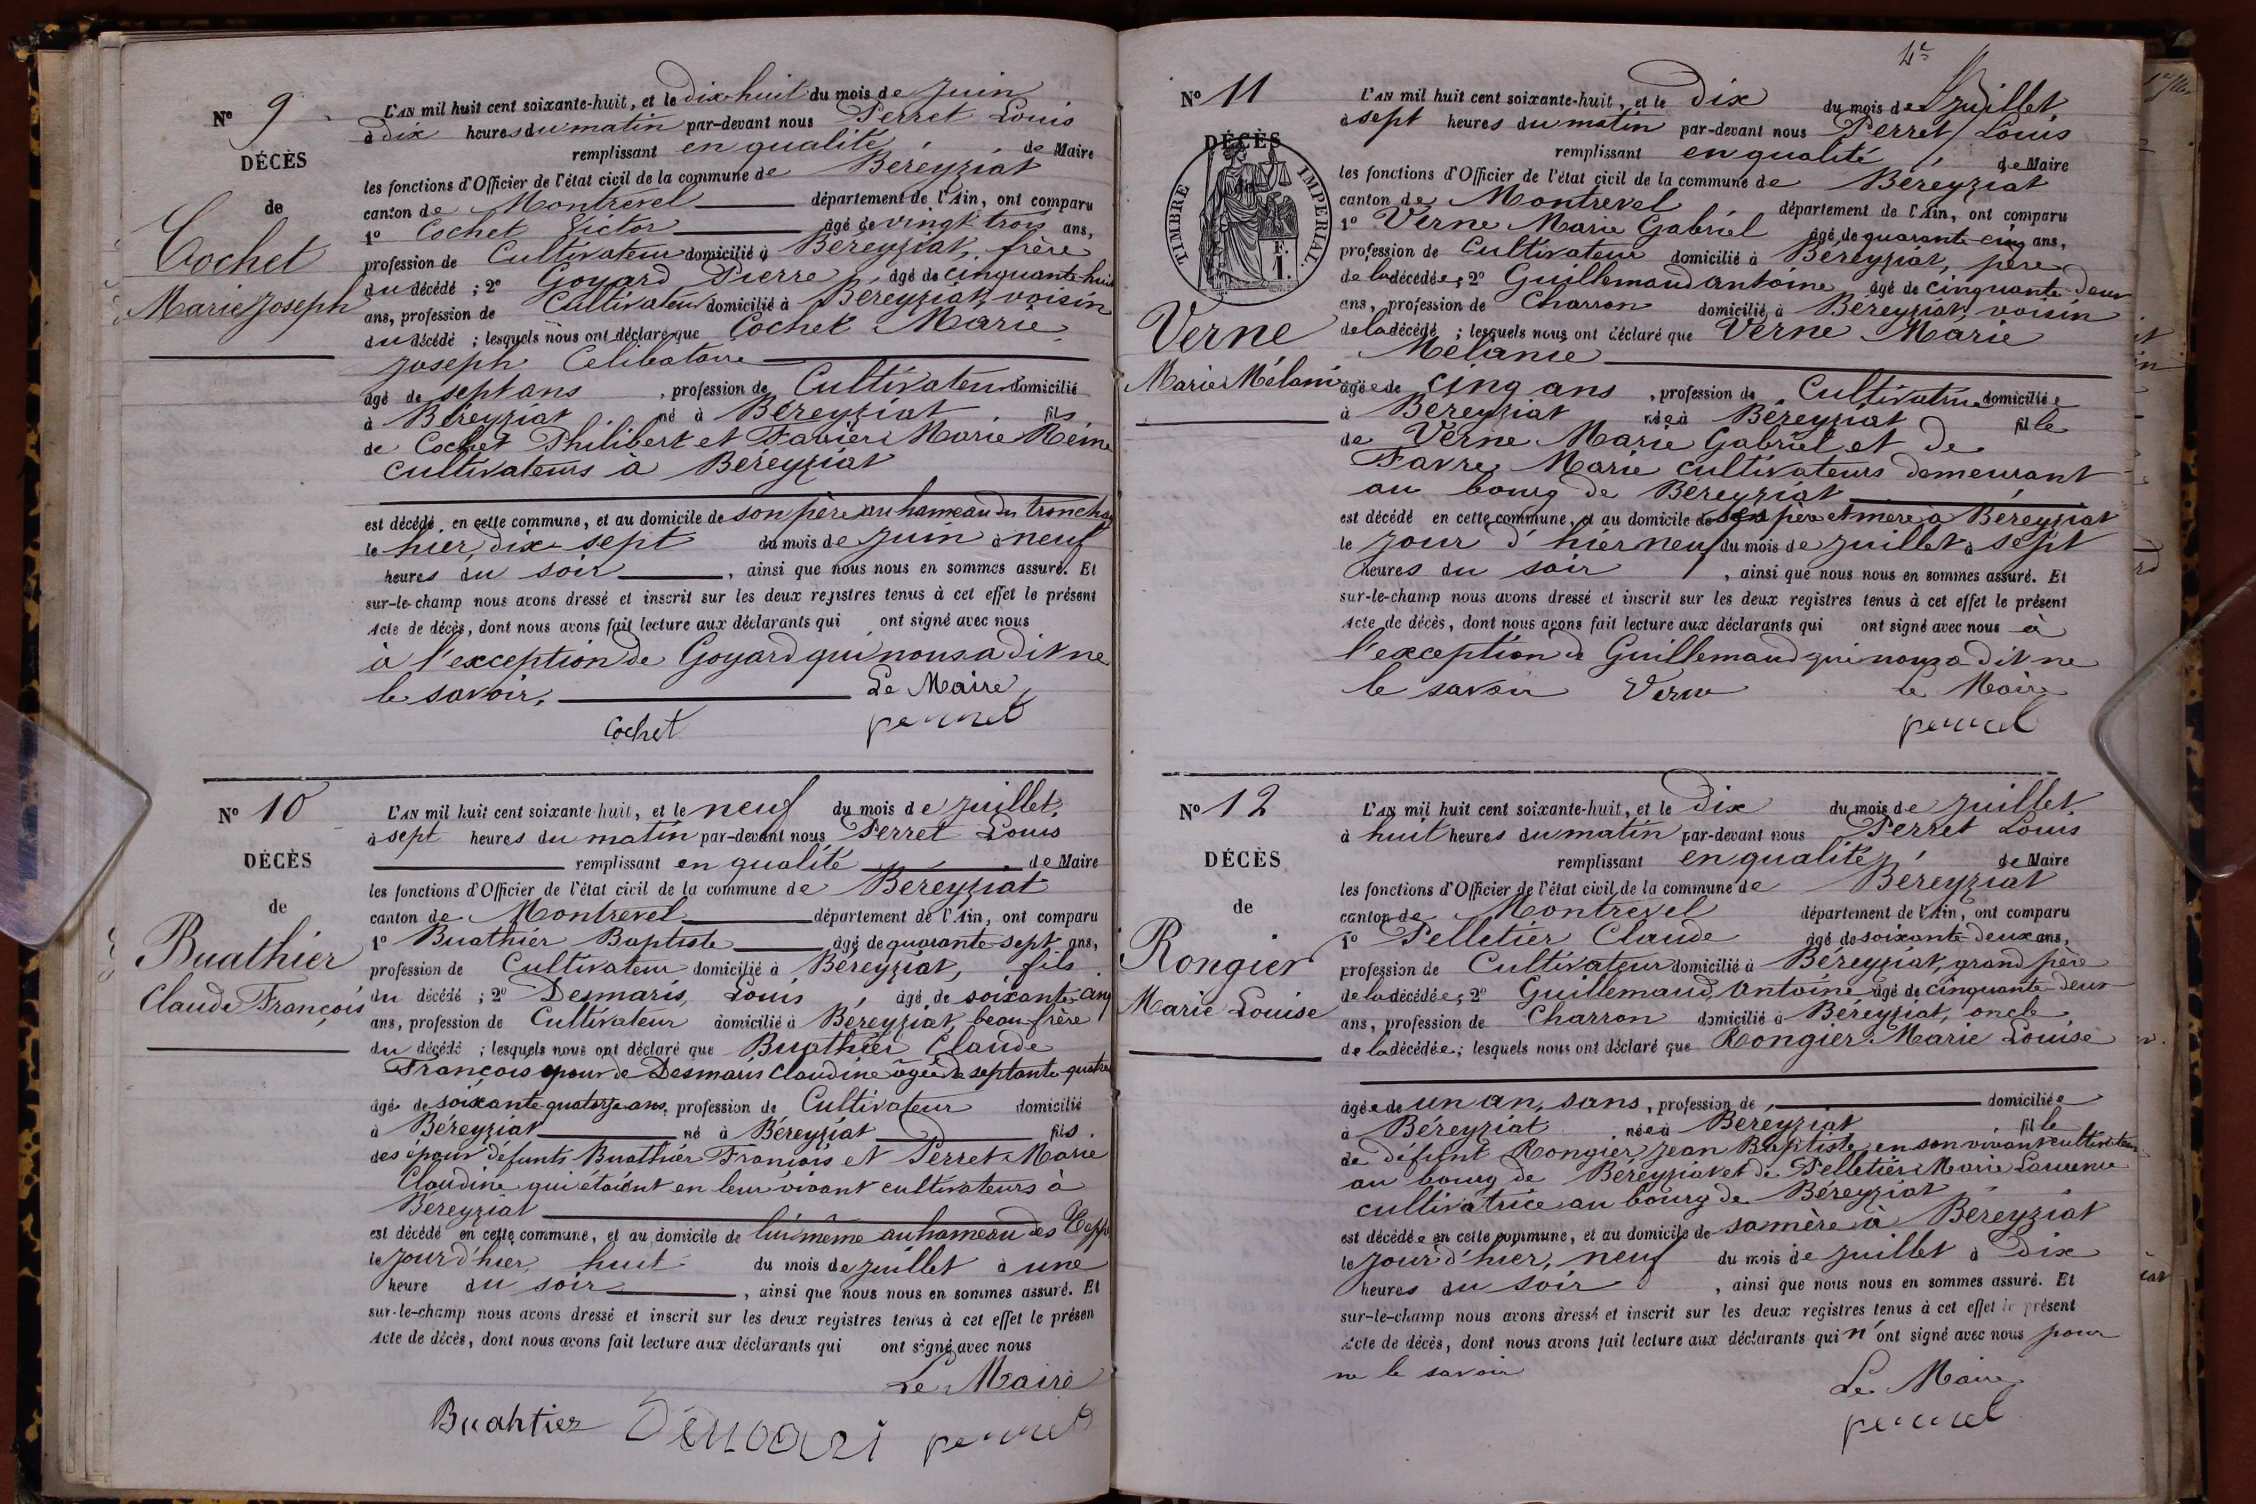 Nº 9
DÉCÈS
de
Cochet
Marie Joseph
L'AN mil huit cent soixante-huit, et le dix huit du mois de juin
à dix heures du matin par-devant nous Perret Louis
remplissant en qualité de Maire
les fonctions d'Officier de l'état civil de la commune de Béreyziat
canton de Montrevel département de l'Ain, ont comparu
1º Cochet Victor âgé de vingt trois ans,
profession de Cultivateur domicilié à Béreyziat, frère
du décédé ; 2º Goyard Pierre âgé de cinquante huit
ans, profession de Cultivateur domicilié à Béreyziat, voisin
du décédé ; lesquels nous ont déclaré que Cochet Marie
Joseph Célibataire
âgé de sept ans, profession de Cultivateur domicilié
à Béreyziat né à Béreyziat fils
de Cochet Philibert et Favier Marie Reine
cultivateurs à Béreyziat
est décédé en cette commune, et au domicile de son père au hameau du
le hier, dix-sept du mois de juin à neuf
heures du soir, ainsi que nous nous en sommes assuré. Et
sur-le-champ nous avons dressé et inscrit sur les deux registres tenus à cet effet le présent
Acte de décès, dont nous avons fait lecture aux déclarants qui ont signé avec nous
à l'exception de Goyard qui nous a dit ne
le savoir.
Le Maire
Cochet
perret
Nº 10
DÉCÈS
de
Buathier
Claude François
L'AN mil huit cent soixante-huit, et le neuf du mois de juillet
à sept heures du matin par-devant nous Perret Louis
remplissant en qualité de Maire
les fonctions d'Officier de l'état civil de la commune de Béreyziat
canton de Montrevel département de l'Ain, ont comparu
1º Buathier Baptiste âgé de quarante sept ans,
profession de Cultivateur domicilié à Béreyziat, fils
du décédé ; 2º Desmaris, Louis, âgé de soixante-cinq
ans, profession de Cultivateur domicilié à Béreyziat, beau frère
du décédé ; lesquels nous ont déclaré que Buathier Claude
François époux de Desmaris Claudine âgée de septante-quatre
âgé de soixante-quatorze ans, profession de Cultivateur domicilié
à Béreyziat né à Béreyziat fils
des époux défunts Buathier François et Perret Marie
Claudine qui étaient en leur vivant cultivateurs à
Béreyziat
est décédé en cette commune, et au domicile de lui même au hameau des
le jour d'hier, huit du mois de juillet à une
heure du soir, ainsi que nous nous en sommes assuré. Et
sur-le-champ nous avons dressé et inscrit sur les deux registres tenus à cet effet le présen
Acte de décès, dont nous avons fait lecture aux déclarants qui ont signé avec nous
Le Maire
Buahtier
perret
4e
Nº 11
DÉCÈS
de
TIMBRE IMPERIAL.
F.
1.
Verne
Marie Mélanie
L'AN mil huit cent soixante-huit, et le dix du mois de Juillet
à sept heures du matin par-devant nous Perret Louis
remplissant en qualité de Maire
les fonctions d'Officier de l'état civil de la commune de Béreyziat
canton de Montrevel département de l'Ain, ont comparu
1º Verne Marie Gabriel âgé de quarante-cinq ans,
profession de Cultivateur domicilié à Béreyziat, père
de la décédée ; 2º Guillemaud Antoine âgé de cinquante-deux
ans, profession de Charron domicilié à Béreyziat, voisin
de la décédé ; lesquels nous ont déclaré que Verne Marie
Mélanie
âgée de cinq ans, profession de Cultivatrice domiciliée
à Béreyziat née à Béreyziat fille
de Verne Marie Gabriel et de
Favre Marie cultivateurs demeurant
au bourg de Béreyziat
est décédé en cette commune, et au domicile de ses père et mère à Béreyziat
le jour d'hier neuf du mois de juillet à sept
heures du soir, ainsi que nous nous en sommes assuré. Et
sur-le-champ nous avons dressé et inscrit sur les deux registres tenus à cet effet le présent
Acte de décès, dont nous avons fait lecture aux déclarants qui ont signé avec nous à
l'exception de Guillemaud qui nous a dit ne
le savoir Verne Le Maire
perret
Nº 12
DÉCÈS
de
Rongier
Marie Louise
L'AN mil huit cent soixante-huit, et le dix du mois de juillet
à huit heures du matin par-devant nous Perret Louis
remplissant en qualité de Maire
les fonctions d'Officier de l'état civil de la commune de Béreyziat
canton de Montrevel département de l'Ain, ont comparu
1º Pelletier Claude âgé de soixante-deux ans,
profession de Cultivateur domicilié à Béreyziat, grand père
de la décédée ; 2º Guillemaud, Antoine âgé de cinquante-deux
ans, profession de Charron domicilié à Béreyziat, oncle
de la décédée ; lesquels nous ont déclaré que Rongier Marie Louise
âgée de un an, sans, profession de, domiciliée
à Béreyziat née à Béreyziat fille
de défunt Rongier Jean Baptiste en son vivant cultivateur
au bourg de Béreyziat et de Pelletier Marie Laurence
cultivatrice au bourg de Béreyziat
est décédée en cette commune, et au domicile de sa mère à Béreyziat
le jour d'hier, neuf du mois de juillet à dix
heures du soir, ainsi que nous nous en sommes assuré. Et
sur-le-champ nous avons dressé et inscrit sur les deux registres tenus à cet effet le présent
Acte de décès, dont nous avons fait lecture aux déclarants qui n'ont signé avec nous pour
ne le savoir
Le Maire
perret